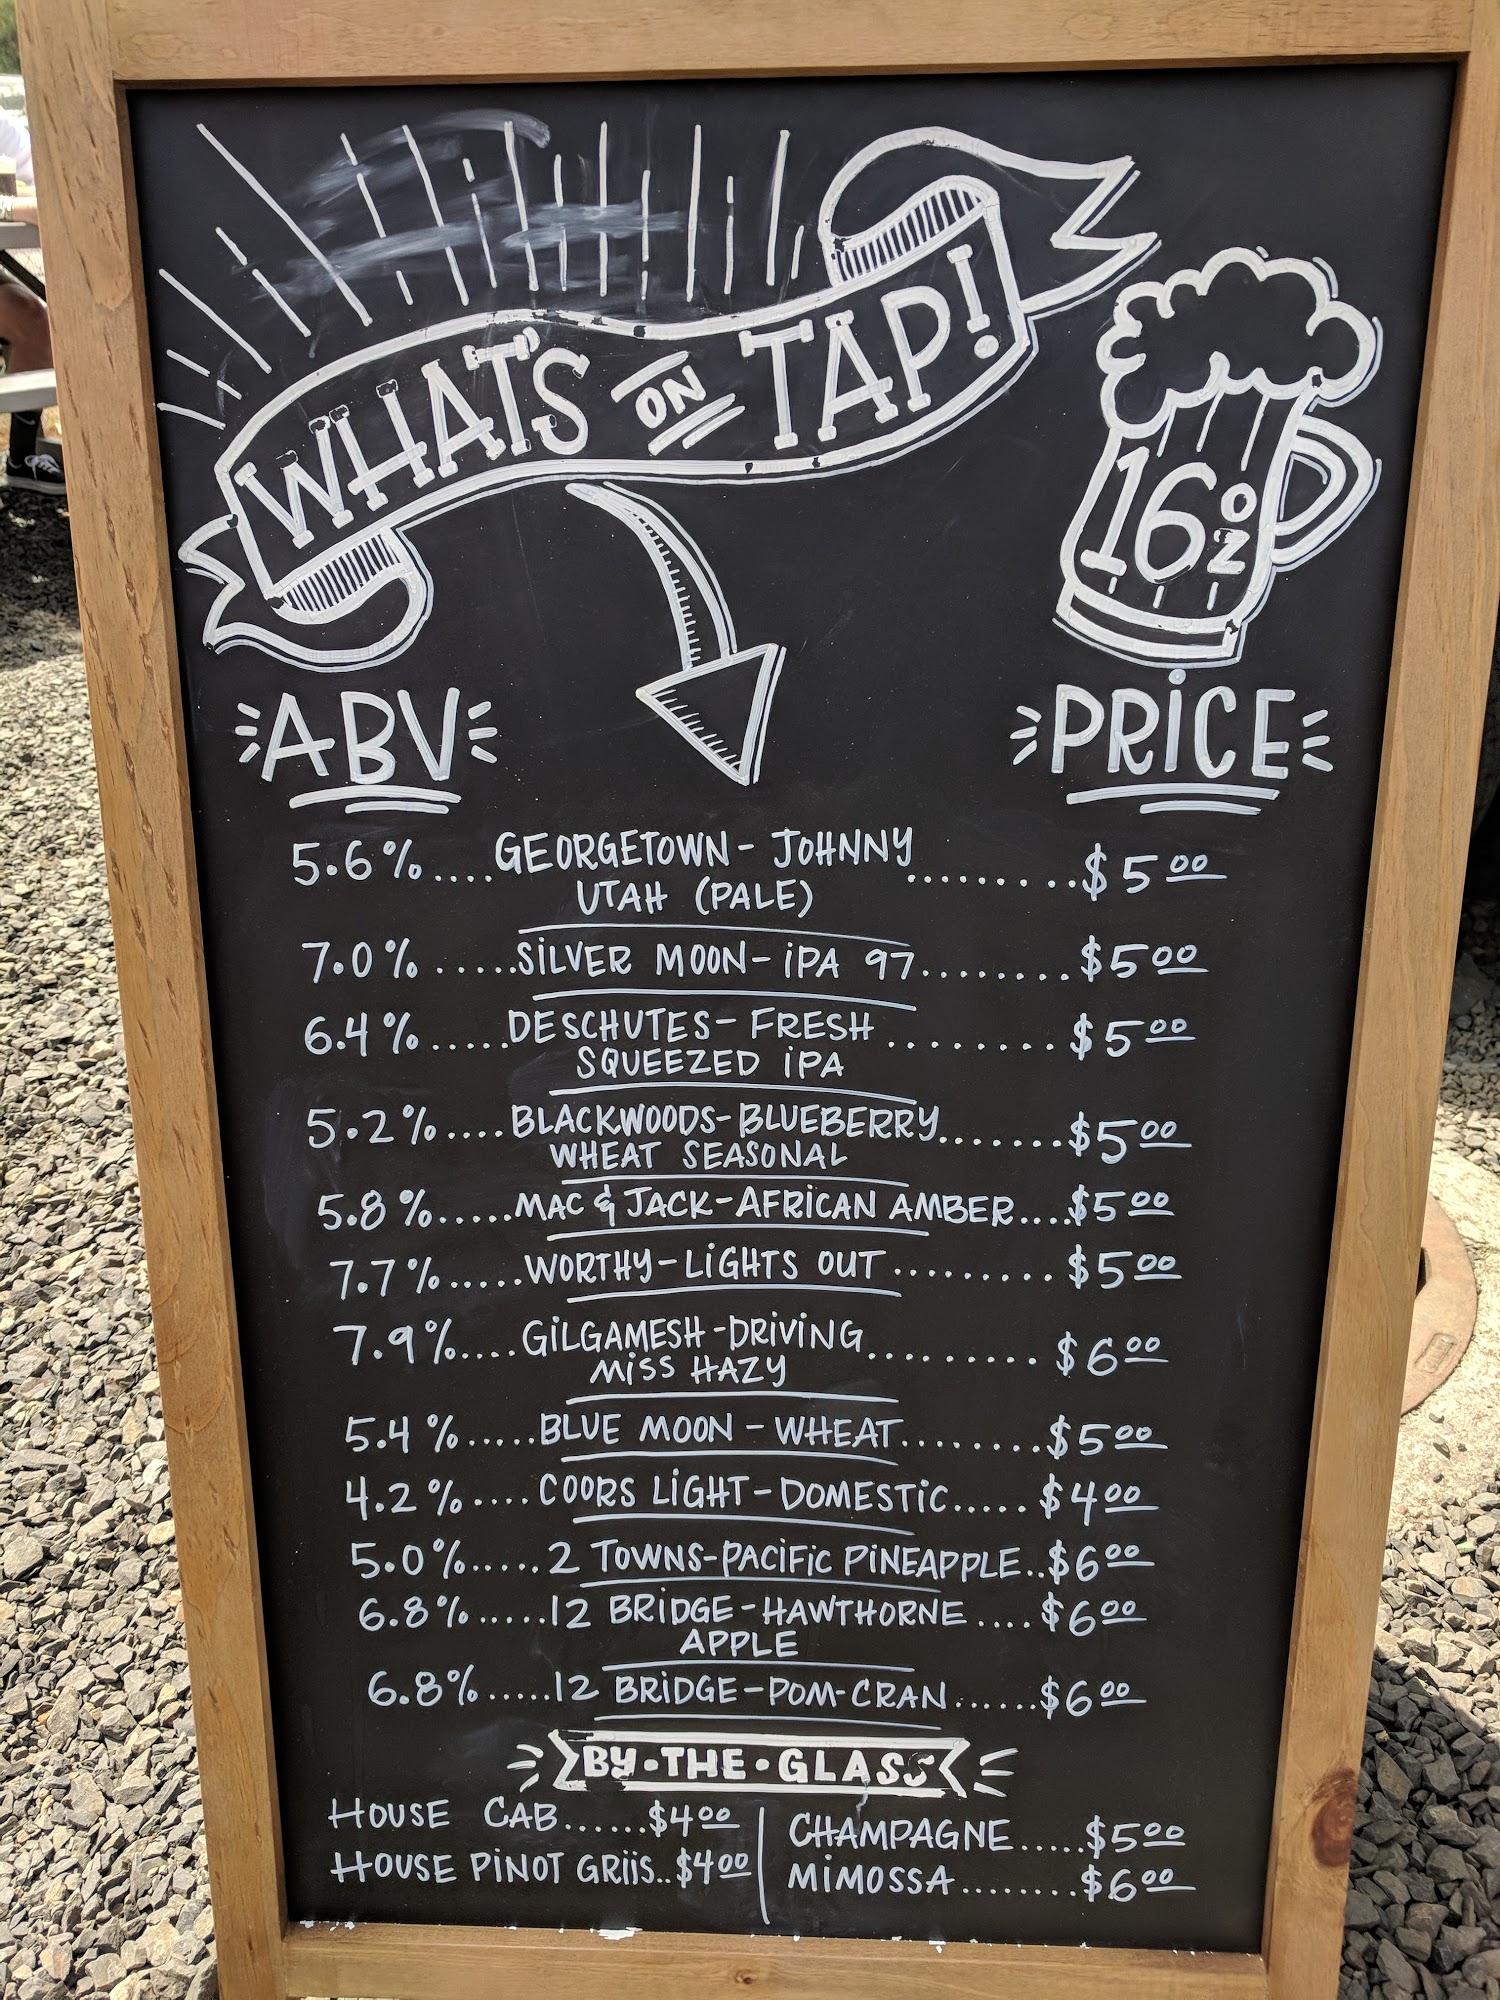 WHAT'S ON TAP!
16 OZ
ABV PRICE
5.6%....GEORGETOWN - JOHNNY.........$5 00
UTAH (PALE)
7.0%.....SILVER MOON - IPA 97........$5 00
6.4%.....DESCHUTES - FRESH.........$5 00
SQUEEZED IPA
5.2%....BLACKWOODS - BLUEBERRY.......$5 00
WHEAT SEASONAL
5.8%.....MAC & JACK - AFRICAN AMBER....$5 00
7.7%.....WORTHY - LIGHTS OUT.........$5 00
7.9%....GILGAMESH - DRIVING.........$6 00
MISS HAZY
5.4%.....BLUE MOON - WHEAT........$5 00
4.2%....COORS LIGHT - DOMESTIC.....$4 00
5.0%.....2 TOWNS - PACIFIC PINEAPPLE..$6 00
6.8%.....12 BRIDGE - HAWTHORNE....$6 00
APPLE
6.8%.....12 BRIDGE - POM-CRAN......$6 00
BY • THE • GLASS
HOUSE CAB......$4 00
HOUSE PINOT GRIIS..$4 00
CHAMPAGNE.....$5 00
MIMOSSA........$6 00